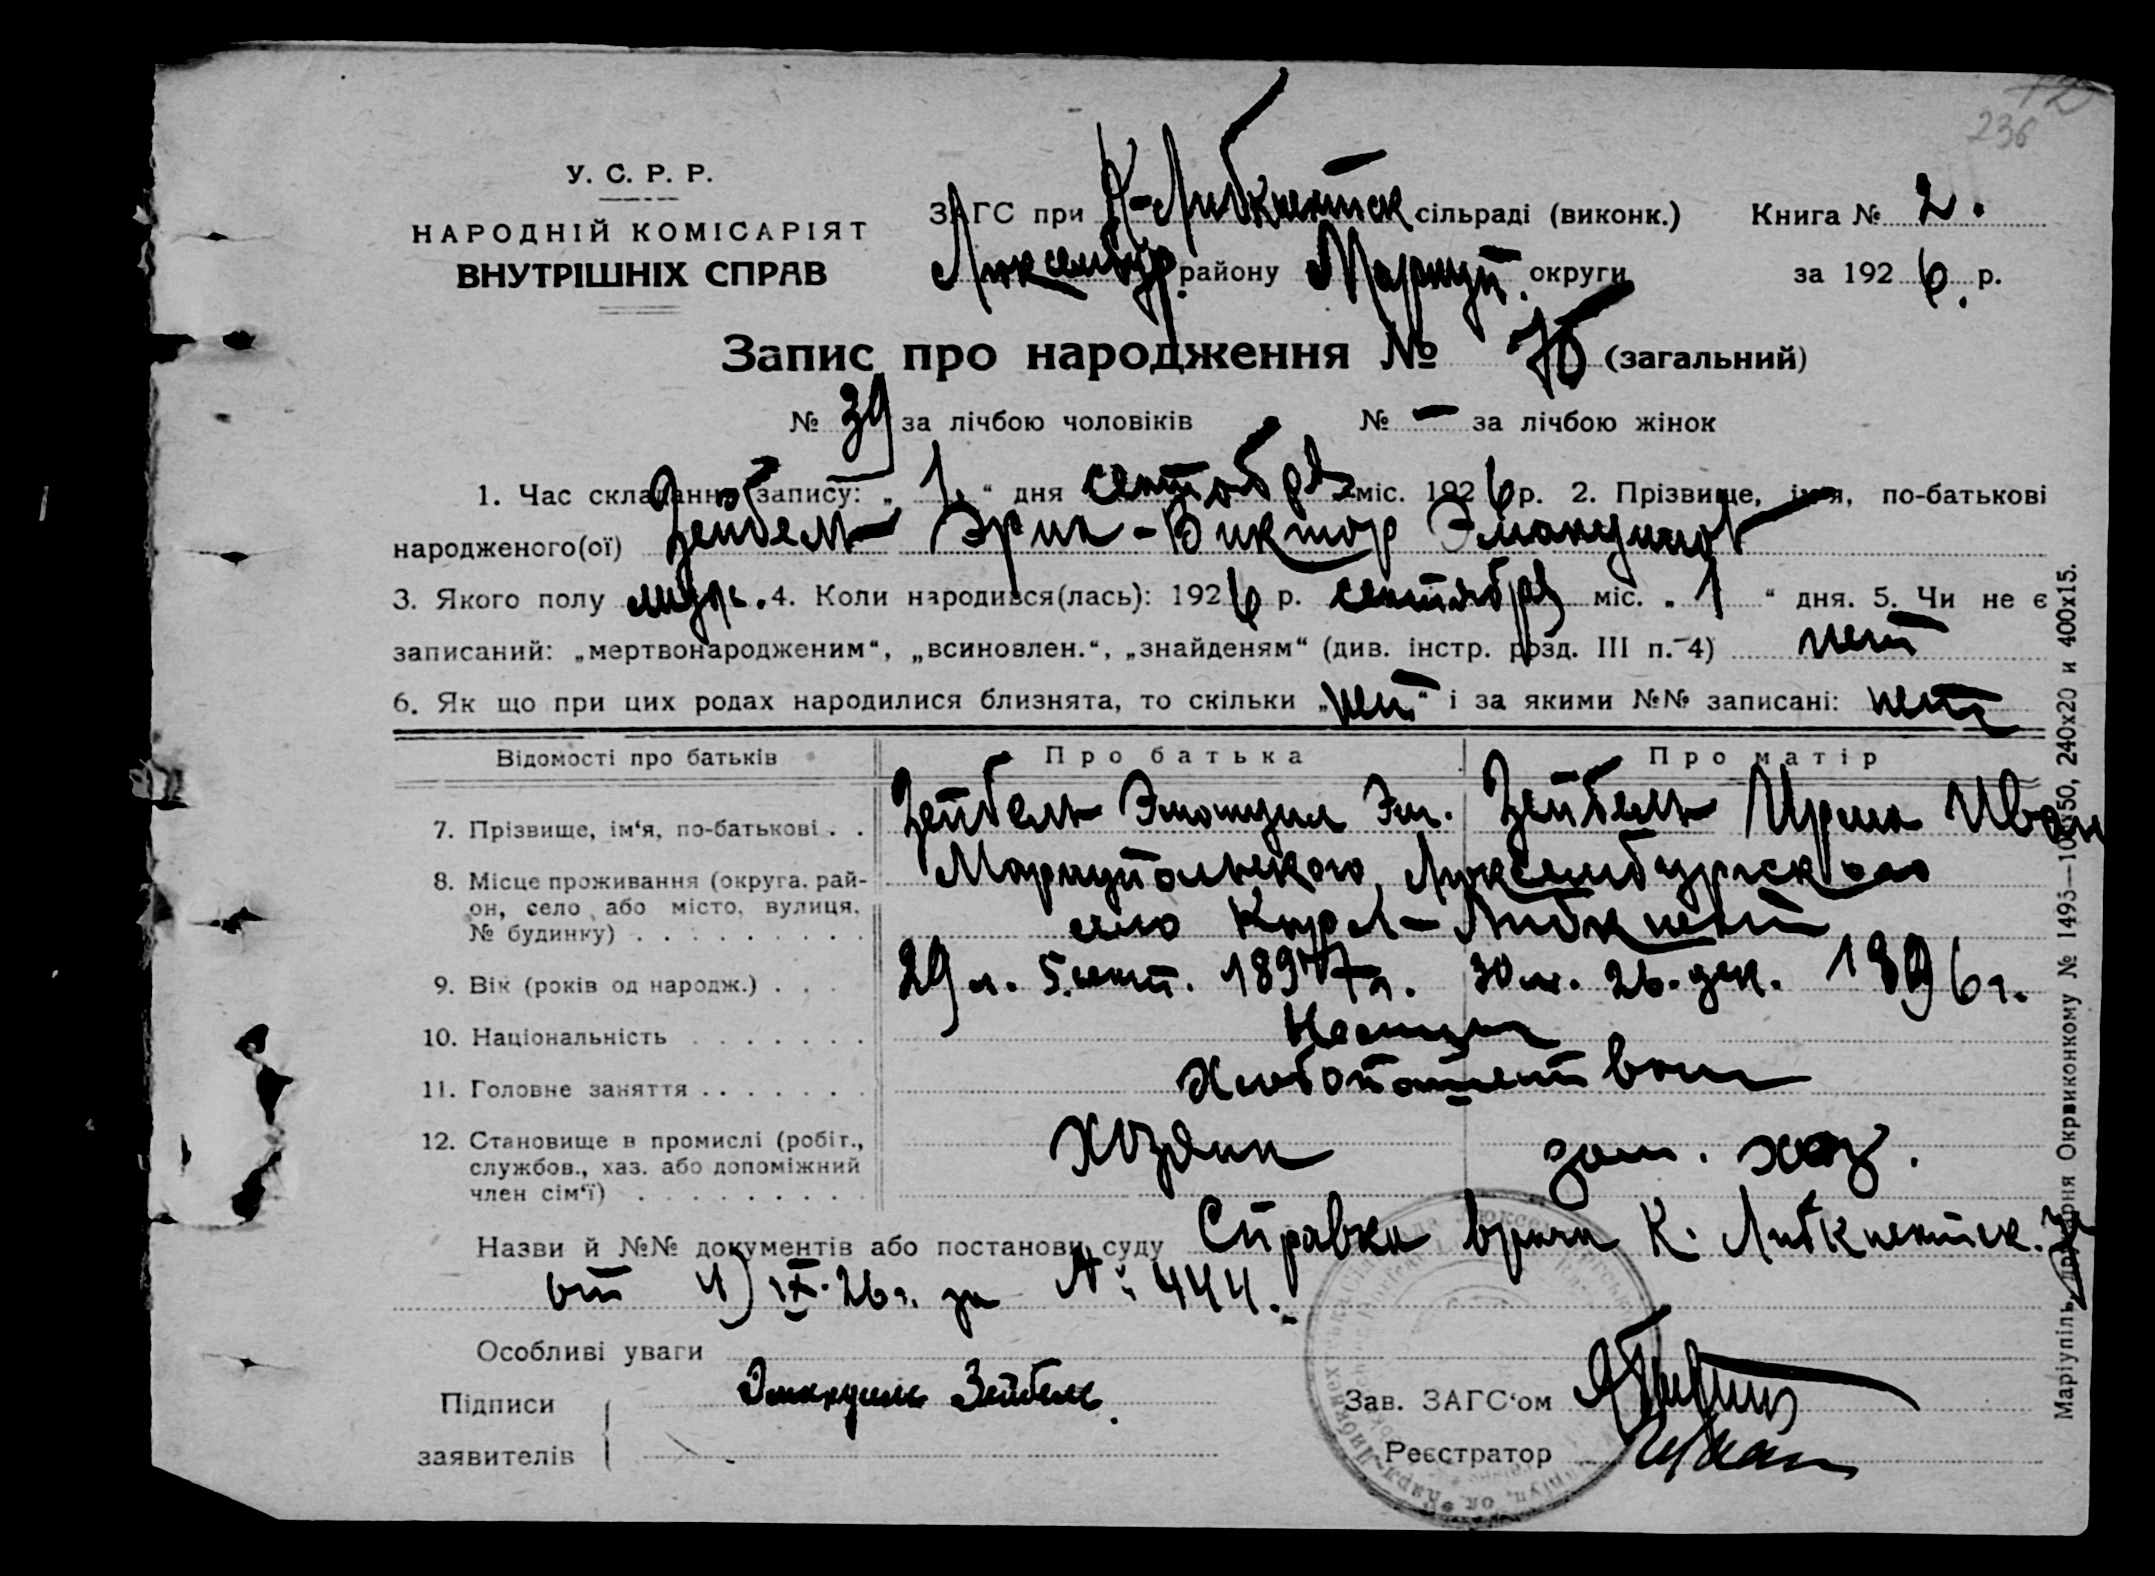 236
У. С. Р. Р.
НАРОДНІЙ КОМІСАРІЯТ
ВНУТРІШНІХ СПРАВ
ЗАГС при К-Либкнехтск сільраді (виконк.) Книга № 2.
Люксембур. району Мариуп. округи за 1926. р.
Запис про народження № 76 (загальний)
№ 39 за лічбою чоловіків № — за лічбою жінок
1. Час складання запису: „ 1. “ дня сентября міс. 1926 р. 2. Прізвище, ім'я, по-батькові
народженого(ої) Зейбель Эрик-Виктор Эмануилов
3. Якого полу мужс. 4. Коли народився(лась): 1926 р. сентября міс. „ 1 “ дня. 5. Чи не є
записаний: „мертвонародженим“, „всиновлен.“, „знайденям“ (див. інстр. розд. III п. 4) нет
6. Як що при цих родах народилися близнята, то скільки „нет“ і за якими №№ записані: нет
Відомості про батьків Про батька Про матір
7. Прізвище, ім'я, по-батькові . . Зейбель Эмануил Эм. Зейбель Ирма Иван
8. Місце проживання (округа, рай- Мариупольского, Люксембургского
он, село або місто, вулиця, село Карл-Либкнехт
№ будинку) . . . . . . . . .
9. Вік (років од народж.) . . . 29 л. 5 сент. 1897 г. 30 л. 26. дек. 1896 г.
10. Національність . . . . . . . Немцы
11. Головне заняття . . . . . . . Хлебопашеством
12. Становище в промислі (робіт., Хозяин дом. хоз.
службов., хаз. або допоміжний
член сім'ї) . . . . . . . . .
Назви й №№ документів або постанови суду Справка врача К. Либкнехтск.
от 1) IX. 26 г. за № 444.
Особливі уваги
Підписи Эмануиль Зейбель.
заявителів
Зав. ЗАГС'ом
Реєстратор
Маріупіль, друкарня Окрвиконкому № 1493—10 50, 240х20 и 400х15.